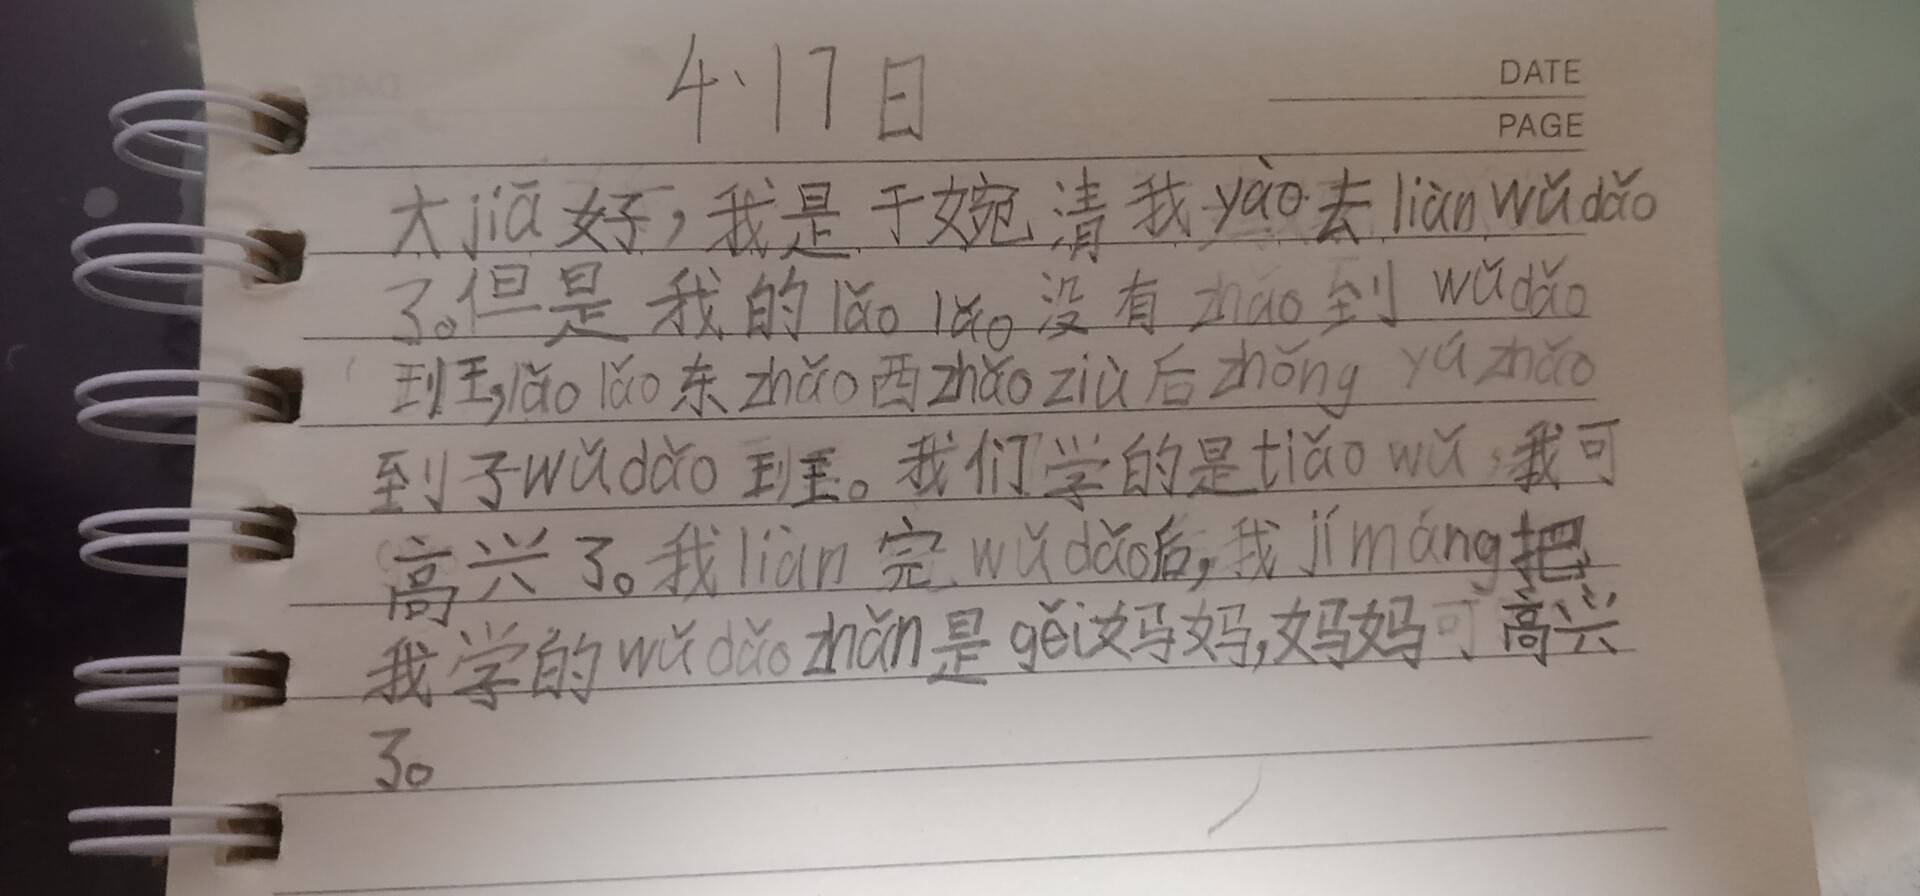 4·17日
DATE
PAGE
大jiā好，我是于婉清我yào去liàn wǔdǎo
了。但是我的lǎo lǎo没有zhǎo到wǔdǎo
班，lǎo lǎo东zhǎo西zhǎo ziù后zhǒng yú zhǎo
到了wǔdǎo班。我们学的是tiǎo wǔ，我可
高兴了。我liàn完wǔdǎo后，我jí máng把
我学的wǔdǎo zhǎn是gěi妈妈，妈妈可高兴
了。